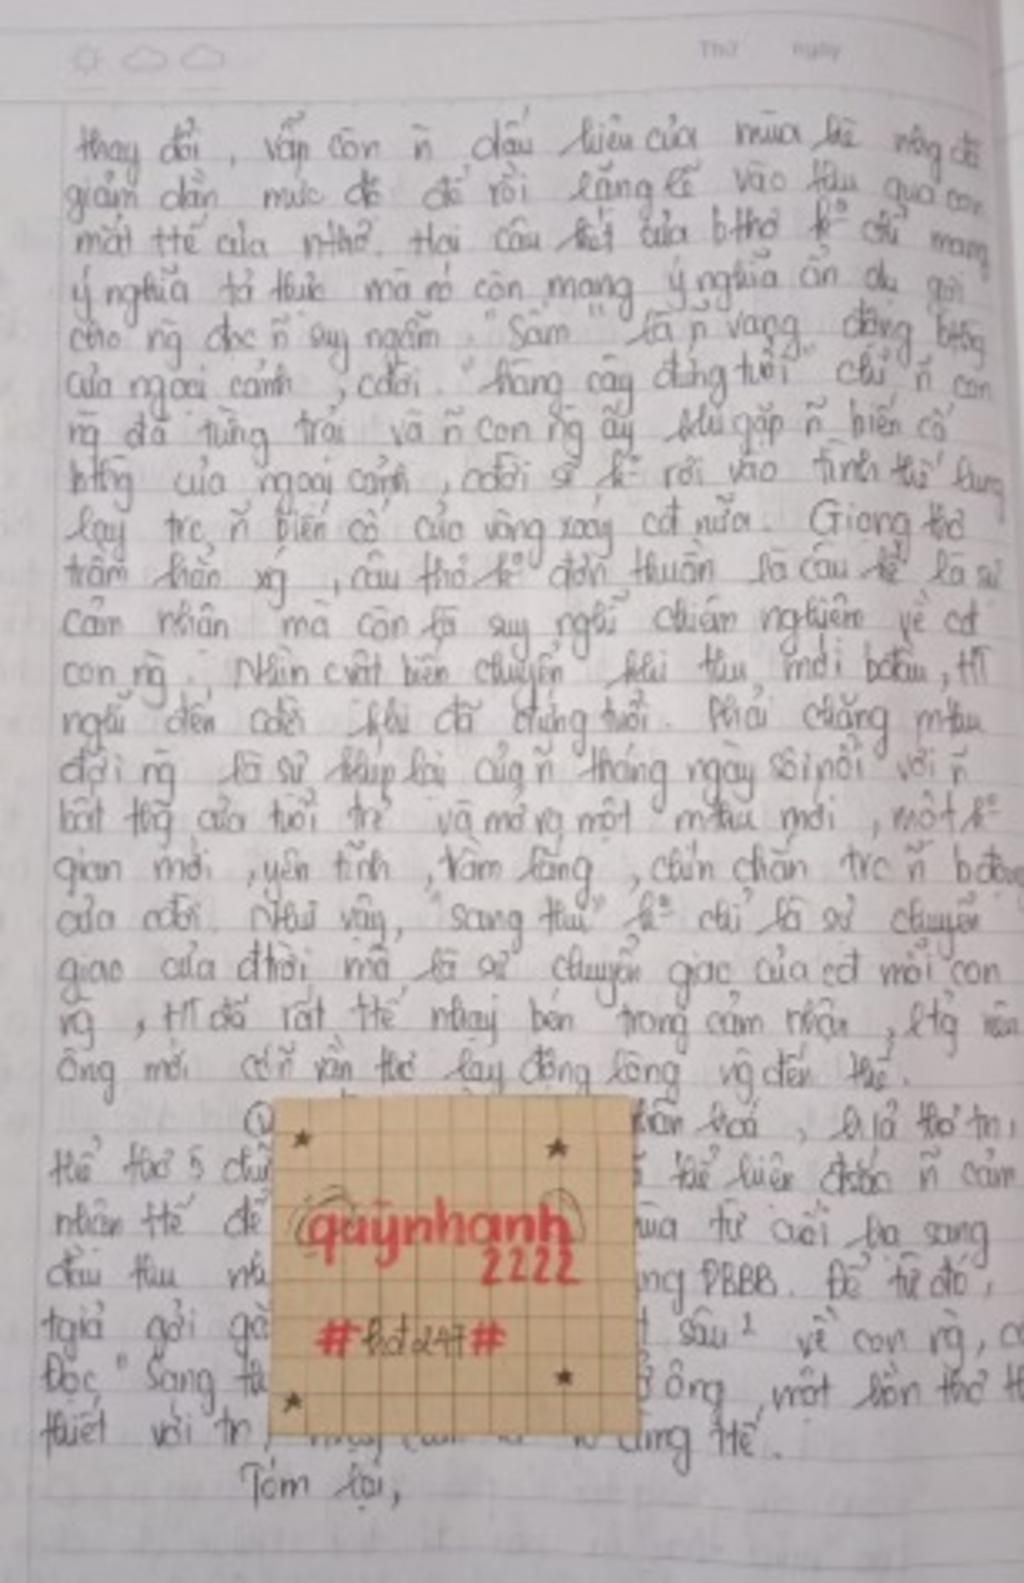 Thứ ngày
thay đổi, vẫn còn ñ dấu hiệu của mùa hè nhg đã
giảm dần mức độ để rồi lặng lẽ vào thu qua con
mắt ttế của nthơ. Hai câu kết của bthơ kº chỉ mang
ý nghĩa tả thực mà nó còn mang ý nghĩa ẩn dụ gợi
cho ng đọc ñ suy ngẫm. "Sấm" là ñ vang động bthg
của ngoại cảnh, cđời. "hàng cây đứng tuổi" chỉ ñ con
ng đã từng trải và ñ con ng ấy khi gặp ñ biến cố
bthg của ngoại cảnh, cđời sẽ kº rơi vào tình thế lung
lay trc ñ biến cố của vòng xoáy cđ nữa. Giọng thơ
trầm hẳn xg, câu thơ kº đơn thuần là câu kể là sự
cảm nhận mà còn là suy nghĩ chiêm nghiệm về cđ
con ng. Nhìn cvật biến chuyển khi thu mới bđầu, HT
nghĩ đến cđời khi đã đứng tuổi. Phải chăng mthu
đời ng là sự khép lại của ñ tháng ngày sôi nổi với ñ
bất thg của tuổi trẻ và mở ra một mthu mới, một kº
gian mới, yên tĩnh, trầm lắng, chín chắn trc ñ bđộng
của cđời. Như vậy, "sang thu" kº chỉ là sự chuyển
giao của đtrời mà là sự chuyển giao của cđ mỗi con
ng, HT đã rất ttế nhạy bén trong cảm nhận,
ông mới có ñ vần thơ lay động lòng ng đến thế.
hân hoá,
thể thơ 5 chữ thể hiện ñ cảm
nhận ttế để ùa từ cuối hạ sang
đầu thu ng ĐBBB. Để từ đó,
tgiả gởi gắ sâu² về con ng, c
Đọc "Sang th ở ông, một hồn thơ th
thiết với cùng ttế.
Tóm lại,
quỳnhanh
2222
#hot247#